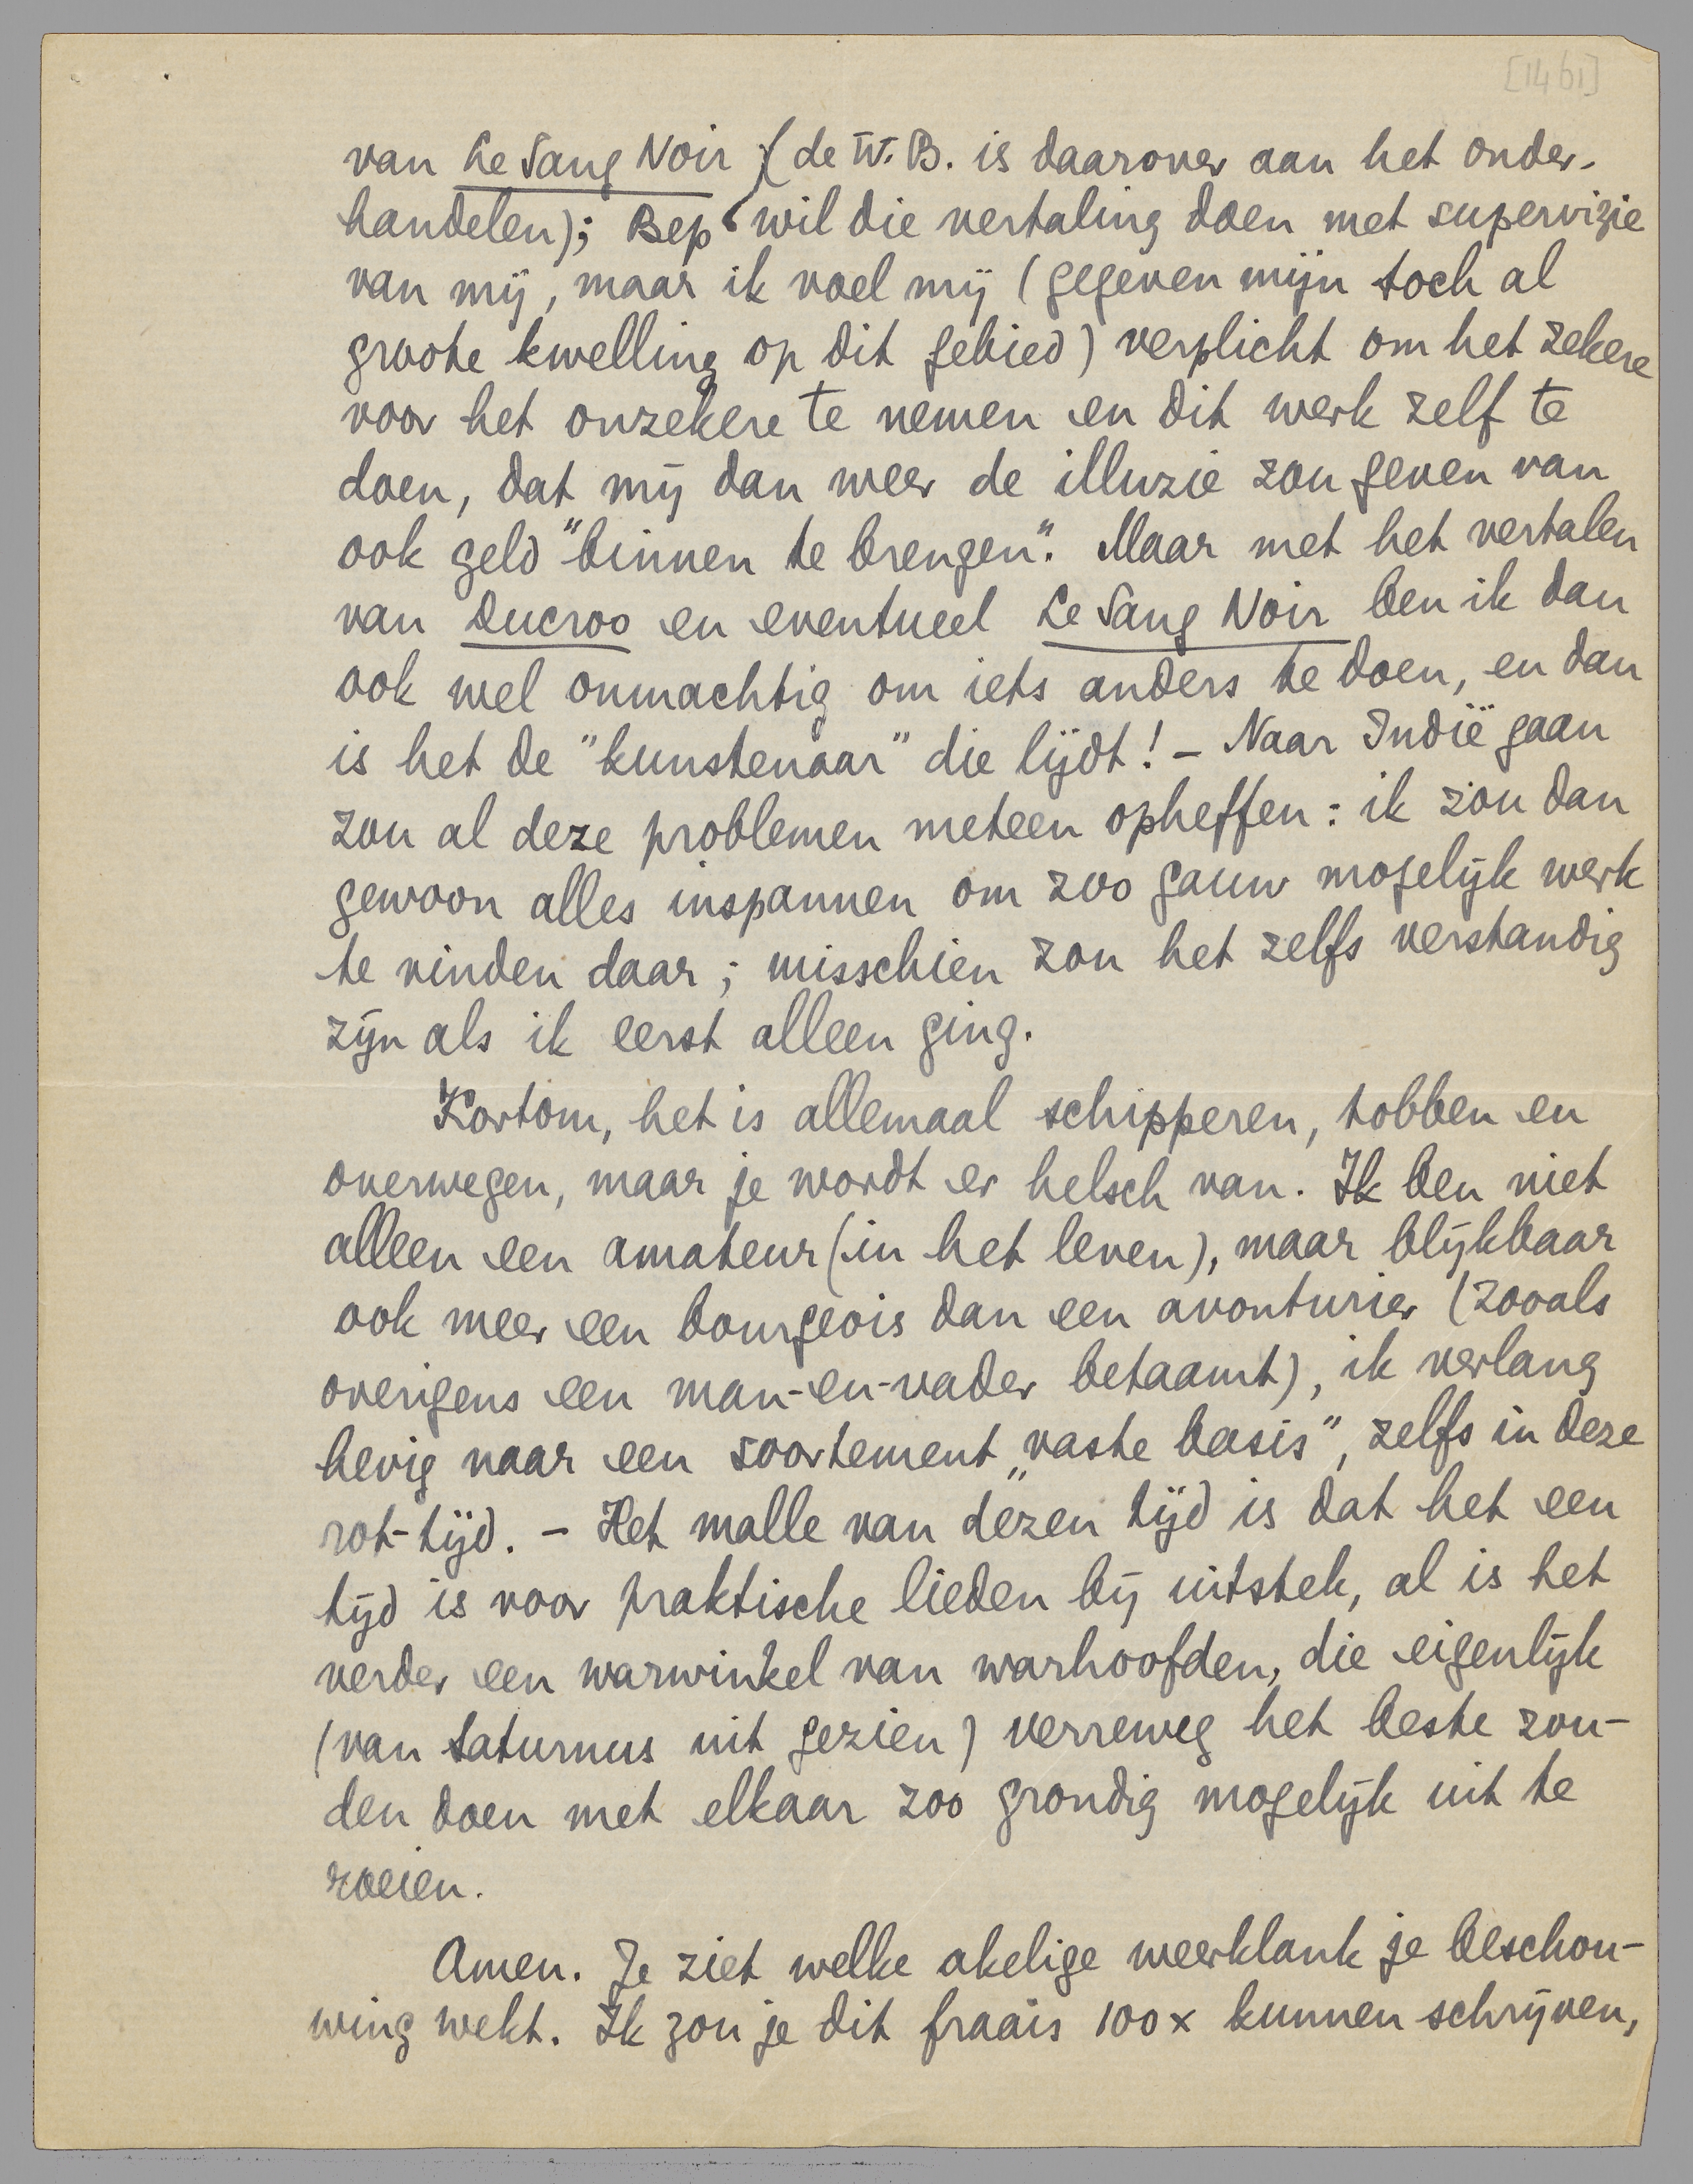 [1461]
van Le Sang Noir (de W.B. is daarover aan het onder-
handelen); Bep wil die vertaling doen met supervizie
van mij, maar ik voel mij (gegeven mijn toch al
groote kwelling op dit gebied) verplicht om het zekere
voor het onzekere te nemen en dit werk zelf te
doen, dat mij dan weer de illuzie zou geven van
ook geld "binnen te brengen". Maar met het vertalen
van Ducroo en eventueel Le Sang Noir ben ik dan
ook wel onmachtig om iets anders te doen, en dan
is het de "kunstenaar" die lijdt! - Naar Indië gaan
zou al deze problemen meteen opheffen: ik zou dan
gewoon alles inspannen om zoo gauw mogelijk werk
te vinden daar; misschien zou het zelfs verstandig
zijn als ik eerst alleen ging.
Kortom, het is allemaal schipperen, tobben en
overwegen, maar je wordt er helsch van. Ik ben niet
alleen een amateur (in het leven), maar blijkbaar
ook meer een bourgeois dan een avonturier (zooals
overigens een man-en-vader betaamt), ik verlang
hevig naar een soortement „vaste basis", zelfs in deze
rot-tijd. - Het malle van dezen tijd is dat het een
tijd is voor praktische lieden bij uitstek, al is het
verder een warwinkel van warhoofden, die eigenlijk
(van Saturnus uit gezien) verreweg het beste zou-
den doen met elkaar zoo grondig mogelijk uit te
roeien.
Amen. Je ziet welke akelige weerklank je beschou-
wing wekt. Ik zou je dit fraais 100 x kunnen schrijven,